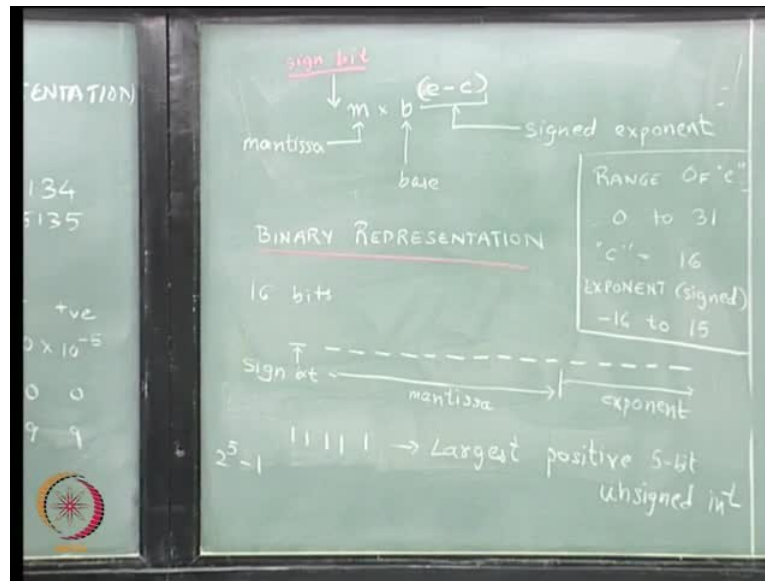 ENTATION)
134
5135
+ve
0 × 10^-5
0 0
9 9
sign bit
m × b^(e-c)
mantissa
signed exponent
base
BINARY REPRESENTATION
16 bits
RANGE OF "e"
0 to 31
"c" = 16
EXPONENT (signed)
-16 to 15
Sign bit
mantissa
exponent
2^5-1 11111 → Largest positive 5-bit
unsigned int